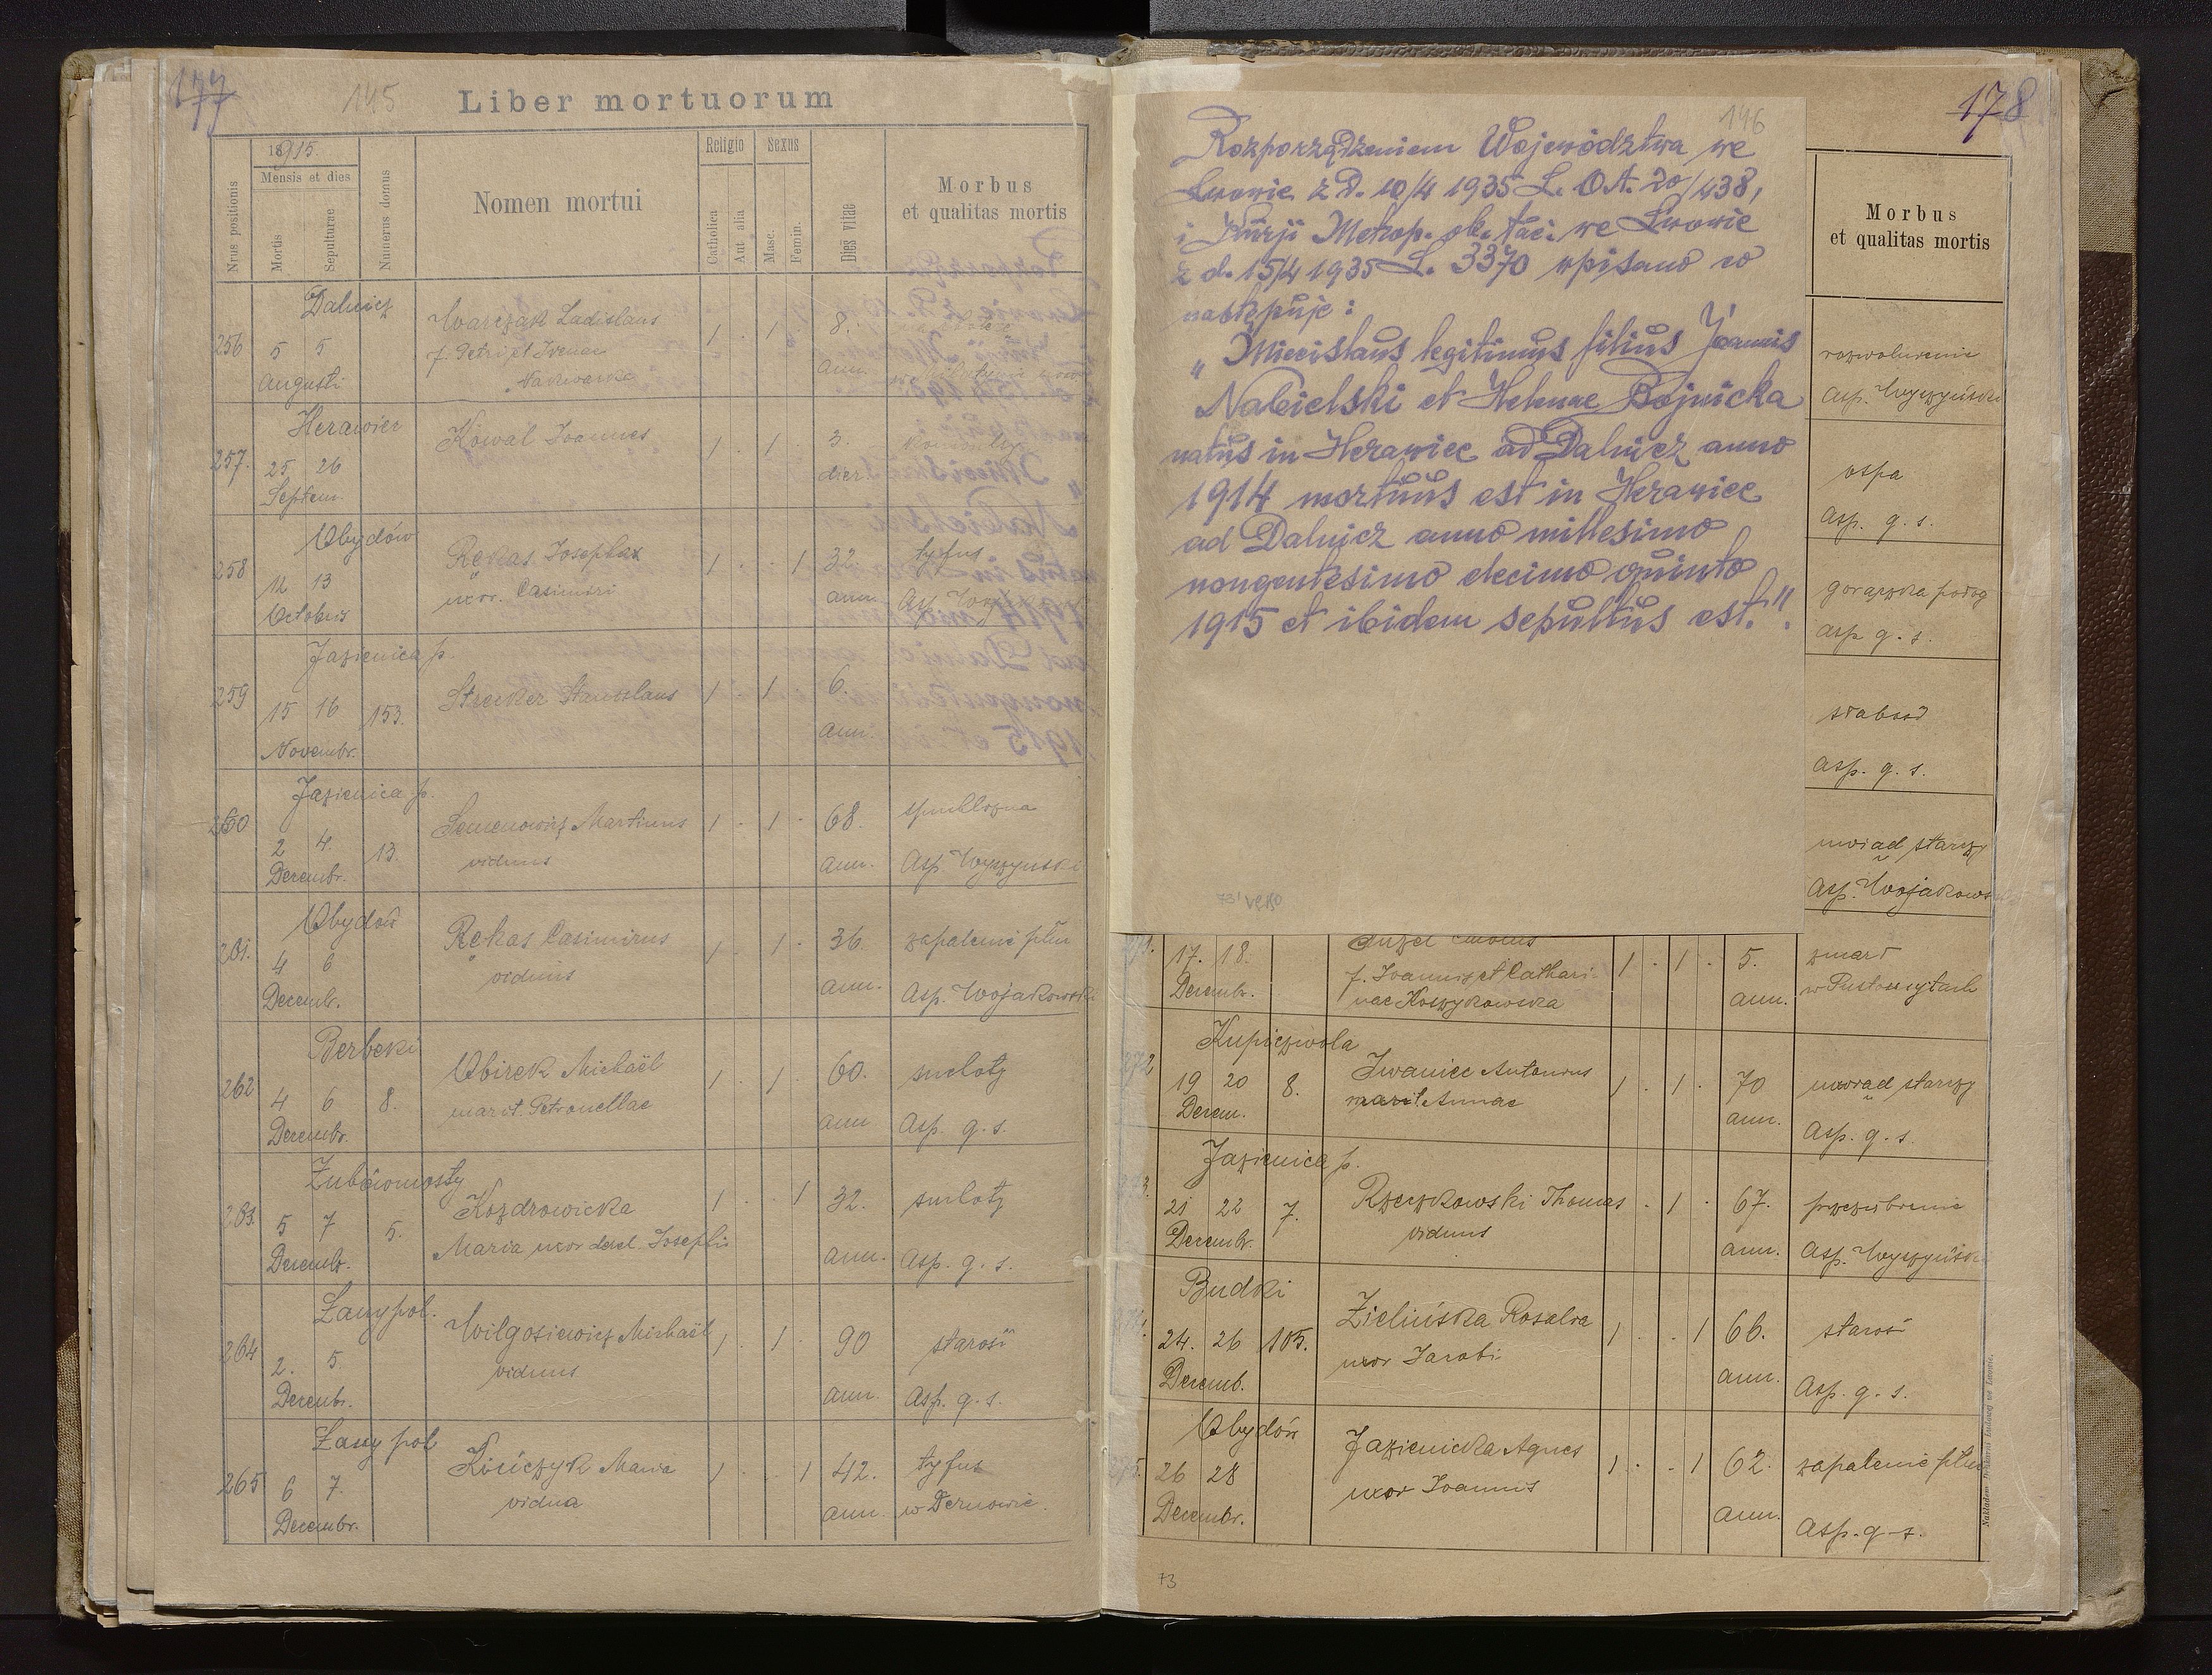 177
145
Liber mortuorum
Nrus positionis
18915.
Mensis et dies
Mortis
Sepulturae
Numerus domus
Nomen mortui
Religio
Catholica
Aut alia
Sexus
Masc.
Femin.
Dies vitae
Morbus
et qualitas mortis
Dalnicz
256 5 5 Warczak Ladislaus 1 . 1 . 8.
f. Petri et Irenae
Augusti ann.
Herawiec
257. 25 26 Kowal Joannes 1 . 1 . 3.
Septem. dier.
Obydów
258 12 13 Rękas Josepha 1 . . 1 32 tyfus
uxor. Casimiri
Octobris ann.
Jazienica p.
259 15 16 153. Strecker Stanislaus 1 . 1 . 6.
Novembr. ann.
Jazienica p.
260 2 4. 13. Semenowicz Martinus 1 . 1 . 68.
viduus
Decembr. ann. Asp. Wyszyński
Obydów
261. 4 6 Rękas Casimirus 1 . 1 . 36. zapalenie płuc
viduus
Decembr. ann. Asp. Wojakowski
Berbeki
262 4 6 8. Obirek Michaël 1 . 1 60. suchoty
marit. Petronellae
Decembr. ann Asp. q. s.
Żubiomosty
263. 5 7 5. Kozdrowicka 1 . . 1 32. suchoty
Maria uxor derel. Josephi
Decembr. ann. Asp. q. s.
Łany pol.
264 2. 5. Wilgosiewicz Michaël 1 . 1 . 90 starość
viduus
Decembr. ann. Asp. q. s.
Łany pol
265 6 7. Maria 1 . . 1 42. tyfus
vidua
Decembr. ann. w Dernowie.
178
146
Rozporządzeniem Województwa we
Lwowie z d. 10/4 1935 L. O.A. 20/438,
i Kurji Metrop. ob. łać. we Lwowie
z d. 15/4 1935 L. 3370 wpisano co
następuje:
„Miecislaus legitimus filius Joannis
Nabielski et Helenae Bojnicka
natus in Herawiec ad Dalnicz anno
1914 mortuus est in Herawiec
ad Dalnicz anno millesimo
nongentesimo decimo quinto
1915 et ibidem sepultus est.".
Morbus
et qualitas mortis
rozwolnienie
Asp. Wyszyński
ospa
Asp. q. s.
gorączka połog
Asp q. s.
Asp. q. s.
uwiąd starczy
Asp. Wojakowski
17. 18. 1 . 1 . 5. zmarł
f. Joannis et Cathari-
Decembr. nae Koszykowska ann. w Pustomytach
Kupiczwola
272 19 20 8. Iwaniec Antonius 1 . 1 . 70 uwiąd starczy
marit. Annae
Decem. ann. Asp. q. s.
Jazienica p.
21 22 7. Rzeczkowski Thomas . 1 . 67. przeziębienie
viduus
Decembr. ann. Asp. Wyszyński
Budki
24. 26 105. Zielińska Rosalia 1 . . 1 66. starość
uxor Jacobi
Decemb. ann. Asp. q. s.
Obydów
26 28 Jazienicka Agnes 1 . . 1 62. zapalenie płuc
uxor Joannis
Decembr. ann. Asp. q. s.
73